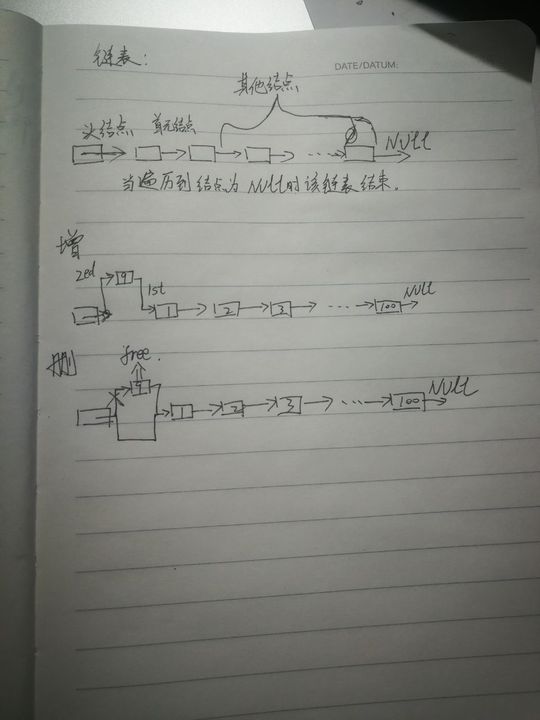 链表:
DATE/DATUM:
其他结点
头结点 首元结点
NULL
当遍历到结点为NULL时该链表结束.
增
2ed 9 1st
1 2 3 ... 100 NULL
删
free.
9
1 2 3 ... 100 NULL